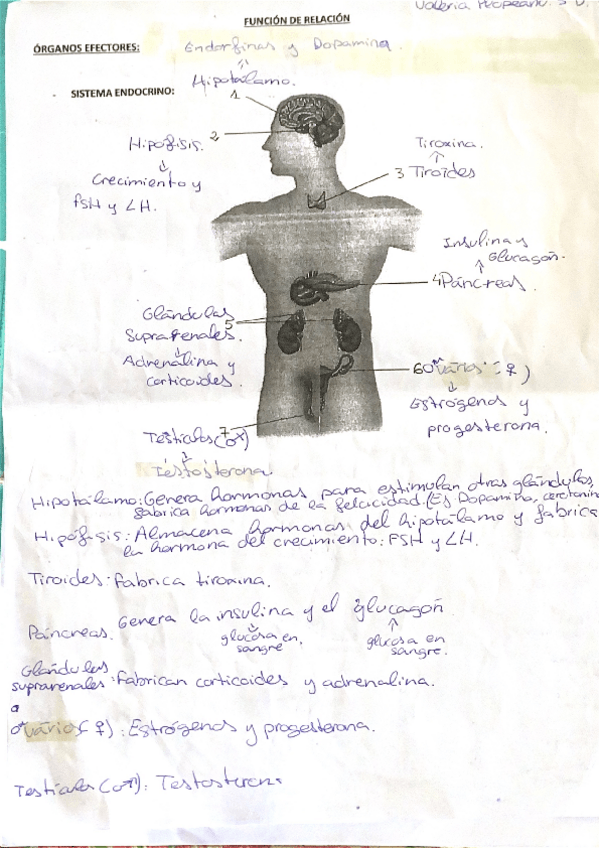 Valeria
FUNCIÓN DE RELACIÓN
ÓRGANOS EFECTORES:
Endorfinas y Dopamina.
Hipotálamo.
SISTEMA ENDOCRINO:
1
2
Hipófisis.
↓
Crecimiento y
FSH y LH.
Tiroxina.
↑
3 Tiroides
Insulina y
Glucagón.
↑
4 Páncreas.
Glándulas
5
Suprarenales.
↓
Adrenalina y
corticoides.
6 Ovários (♀)
↓
Estrógenos y
progesterona.
7
Testículos (♂)
↓
Testosterona.
Hipotálamo: Genera hormonas para estimulan otras glándulas,
fabrica hormonas de la felicidad. (Ej Dopamina,
Hipófisis: Almacena hormonas del hipotálamo y fabrica
la hormona del crecimiento: FSH y LH.
Tiroides: Fabrica tiroxina.
Páncreas. Genera la insulina y el glucagón
↓ glucosa en sangre.
↑ glucosa en sangre.
Glándulas
suprarenales: Fabrican corticoides y adrenalina.
Ovários (♀): Estrógenos y progesterona.
Testículos (♂): Testosterona